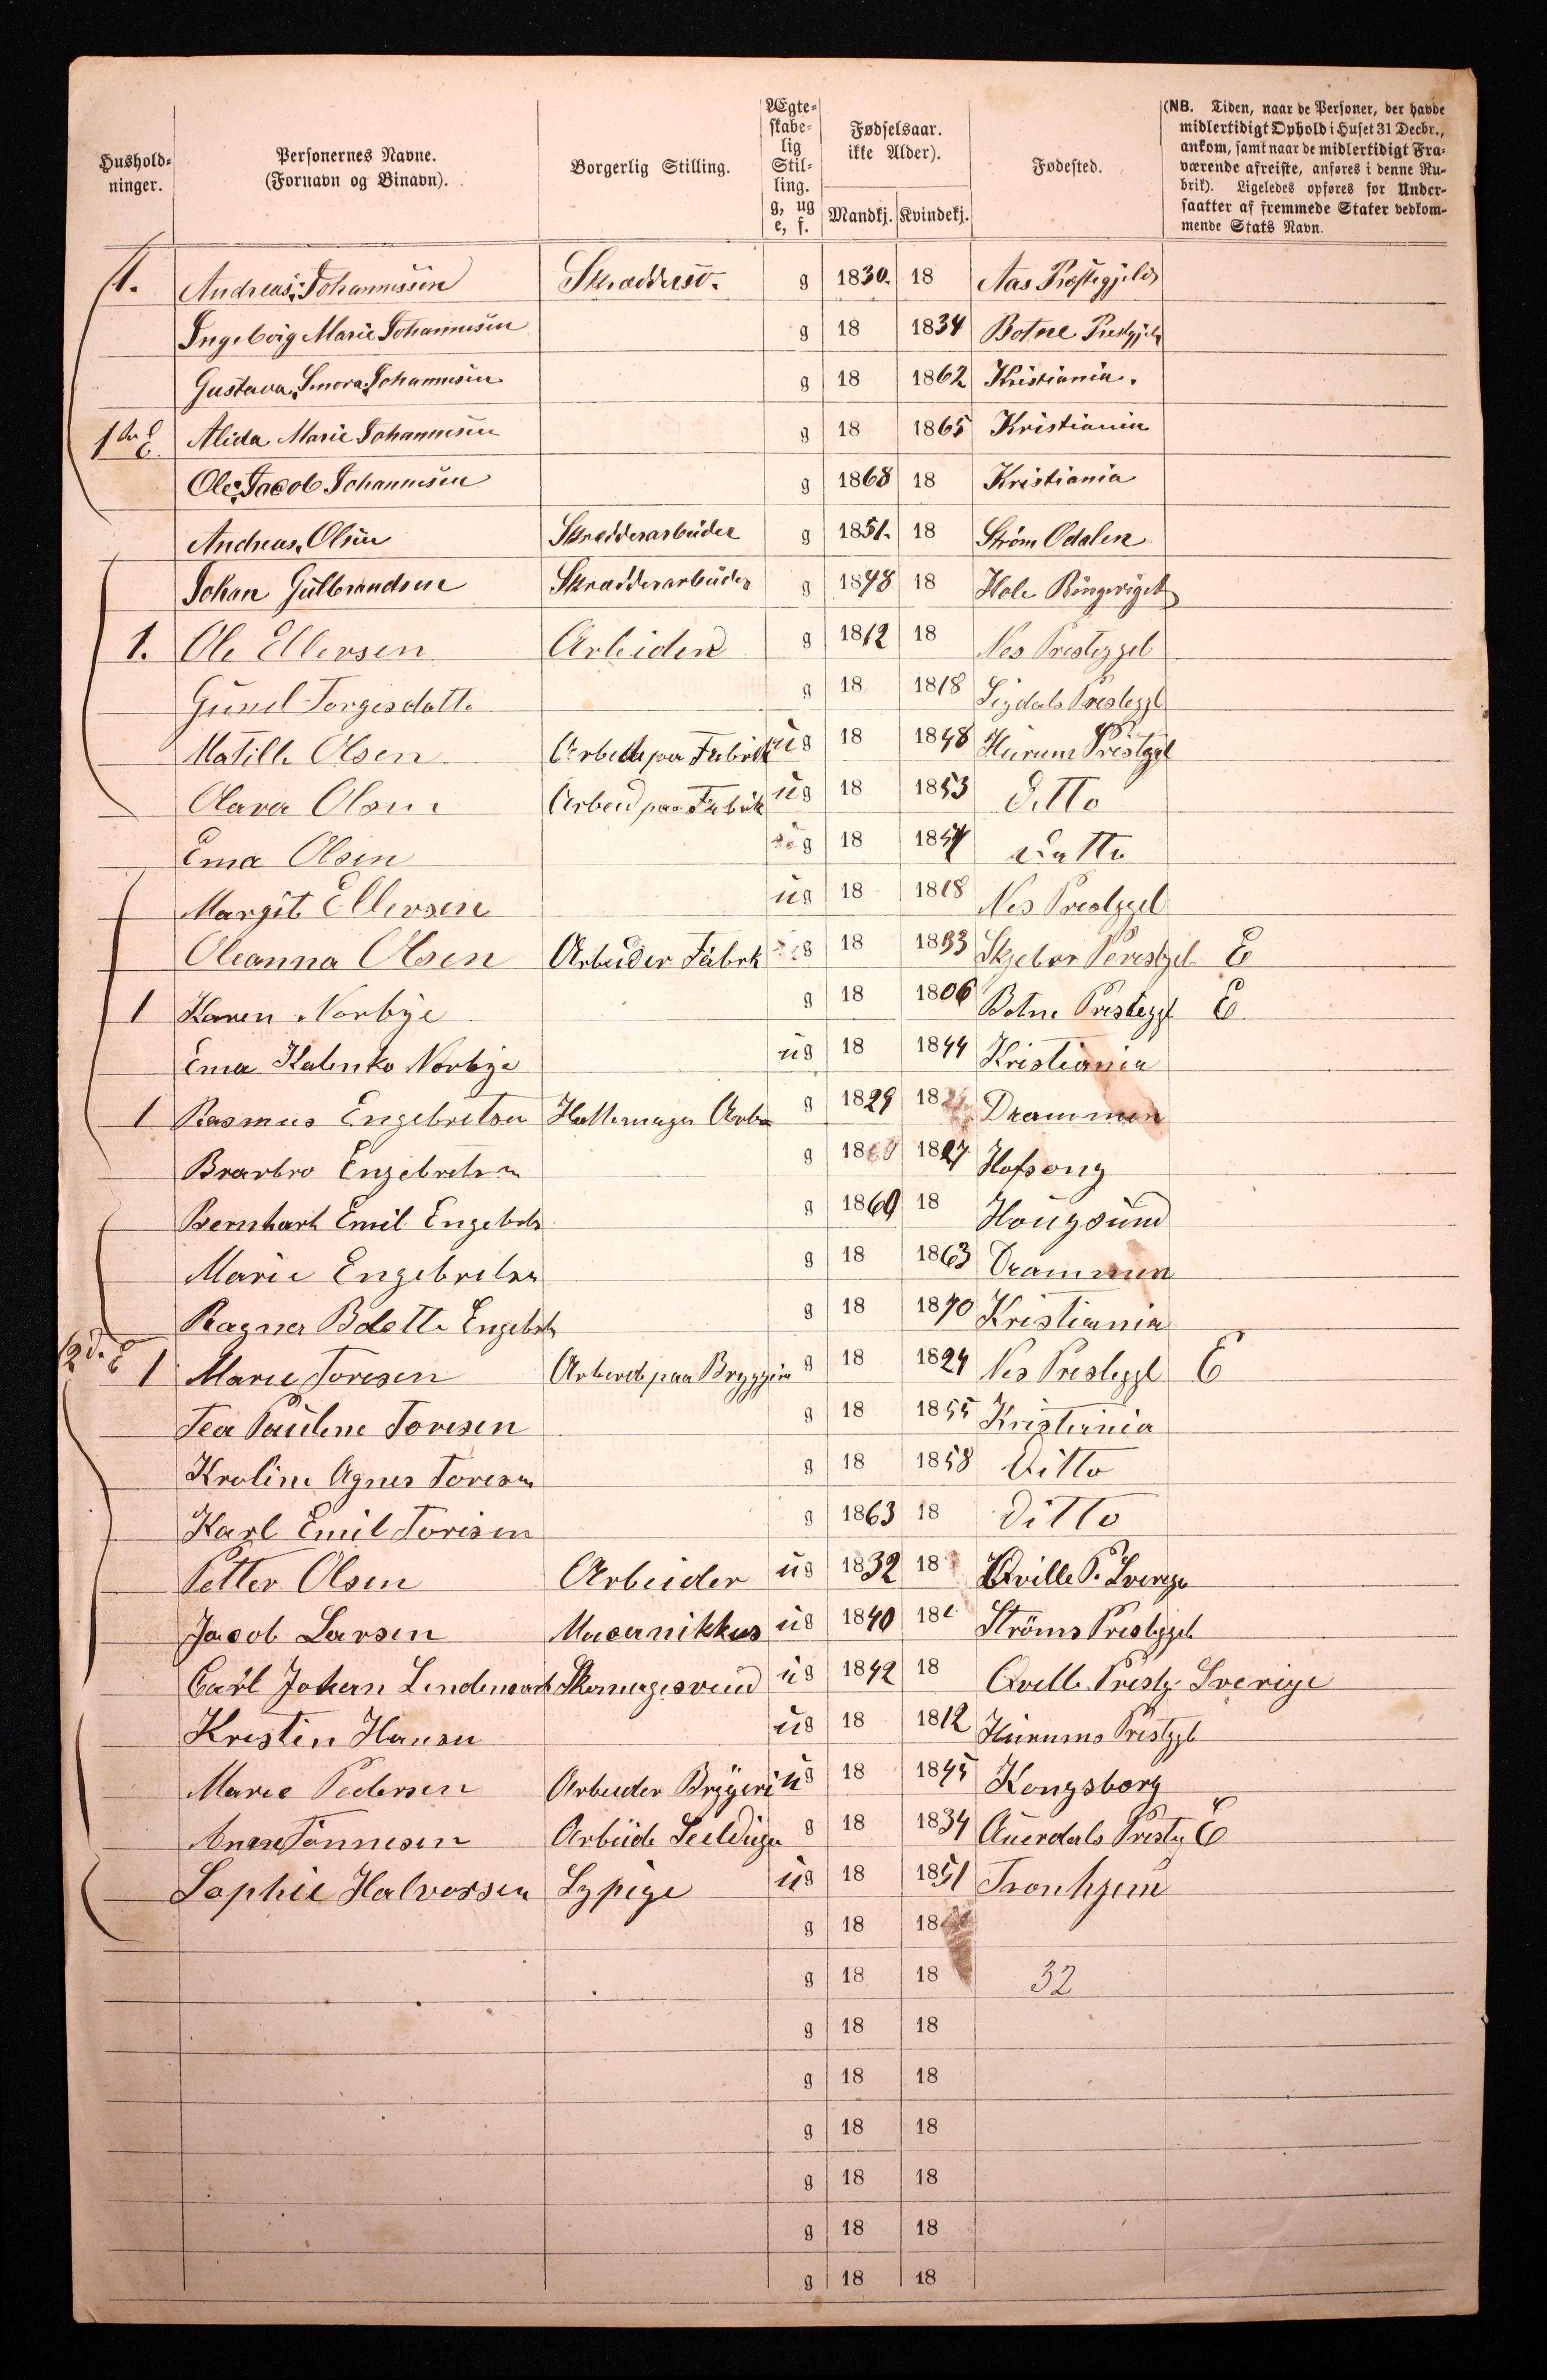 Hushold-
ninger.
Personernes Navne.
(Fornavn og Binavn).
Borgerlig Stilling.
Ægte-
skabe-
lig
Stil-
ling.
g, ug
e, f.
Fødselsaar.
ikke Alder).
Mandkj. Kvindekj.
Fødested.
(NB. Tiden, naar de Personer, der havde
midlertidigt Ophold i Huset 31 Decbr.,
ankom, samt naar de midlertidigt Fra-
værende afreiste, anføres i denne Ru-
brik). Ligeledes opføres for Under-
saatter af fremmede Stater vedkom-
mende Stats Navn.
1. Andreas Johannesen g 1830. 18 Aas Præstegjeld
Ingeborg Marie Johannesen g 18 1834 Botne
Gustava Johannesen g 18 1862 Kristiania.
Alida Marie Johannesen g 18 1865 Kristiania
Ole Jacob Johannesen g 1868 18 Kristiania
Andreas Olsen Skredderarbeider g 1851. 18 Strøm Odalen
Johan Gulbrandsen Skradderarbeider g 1848 18 Hole Ringeriget
1. Ole Ellersen Arbeider g 1812 18 Nes Presteggel
Gunel Torgesdatte g 18 1818 Sigdals Presteggl
Matille Olsen Arbeide paa Fabrik ug 18 1848 Hurum Prestgel
Olava Olsen Arbeid paa Fabrik ug 18 1853 Ditto
Ema Olsen ug 18 Ditto
Margit Ellersen ug 18 1818 Nes Presteggel
Oleanna Olsen Arbeider Fabrk ug 18 1833 Skjeber Perestgel E
1 Karen Norbye g 18 1806 Botne Presteggl E
Ema Norbye ug 18 1844 Kristiania
1 Rasmus Engebretsen Arb g 1829 18 Drammen
Brarbro Engebretsen g 18 1827
Bernhart Emil Engebrets g 1860 18 Hougsund
Marie Engebretsen g 18 1863 Drammen
Ragna Engebrets g 18 1870 Kristiania
2 d. E 1 Marie Toresen Arbeid paa Bryggeri g 18 1824 Nes Presteggl E
Tea Pauline Toresen g 18 1855 Kristiania
Kroline Agnes Toresen g 18 1858 Ditto
Karl Emil Toresen g 1863 18 Ditto
Petter Olsen Arbeider ug 1832 18 Qville P. Sverige
Jacob Larsen Macanikkus ug 1840 18 Ströms Presteggel
Carl Johan Skomagesvend ug 1842 18 Qville Prestg. Sverige
Kristin Hansen ug 18 1812 Hurums Prestggl
Marie Pedersen Arbeider Bryggeri ug 18 1845 Kongsberg
Anne Tönnesen Arbeide g 18 1834 Auerdals Prestg E
Sophie Halvorsen Sypige ug 18 1851 Tronhjem
g 18 18
g 18 18 32
g 18 18
g 18 18
g 18 18
g 18 18
g 18 18
g 18 18